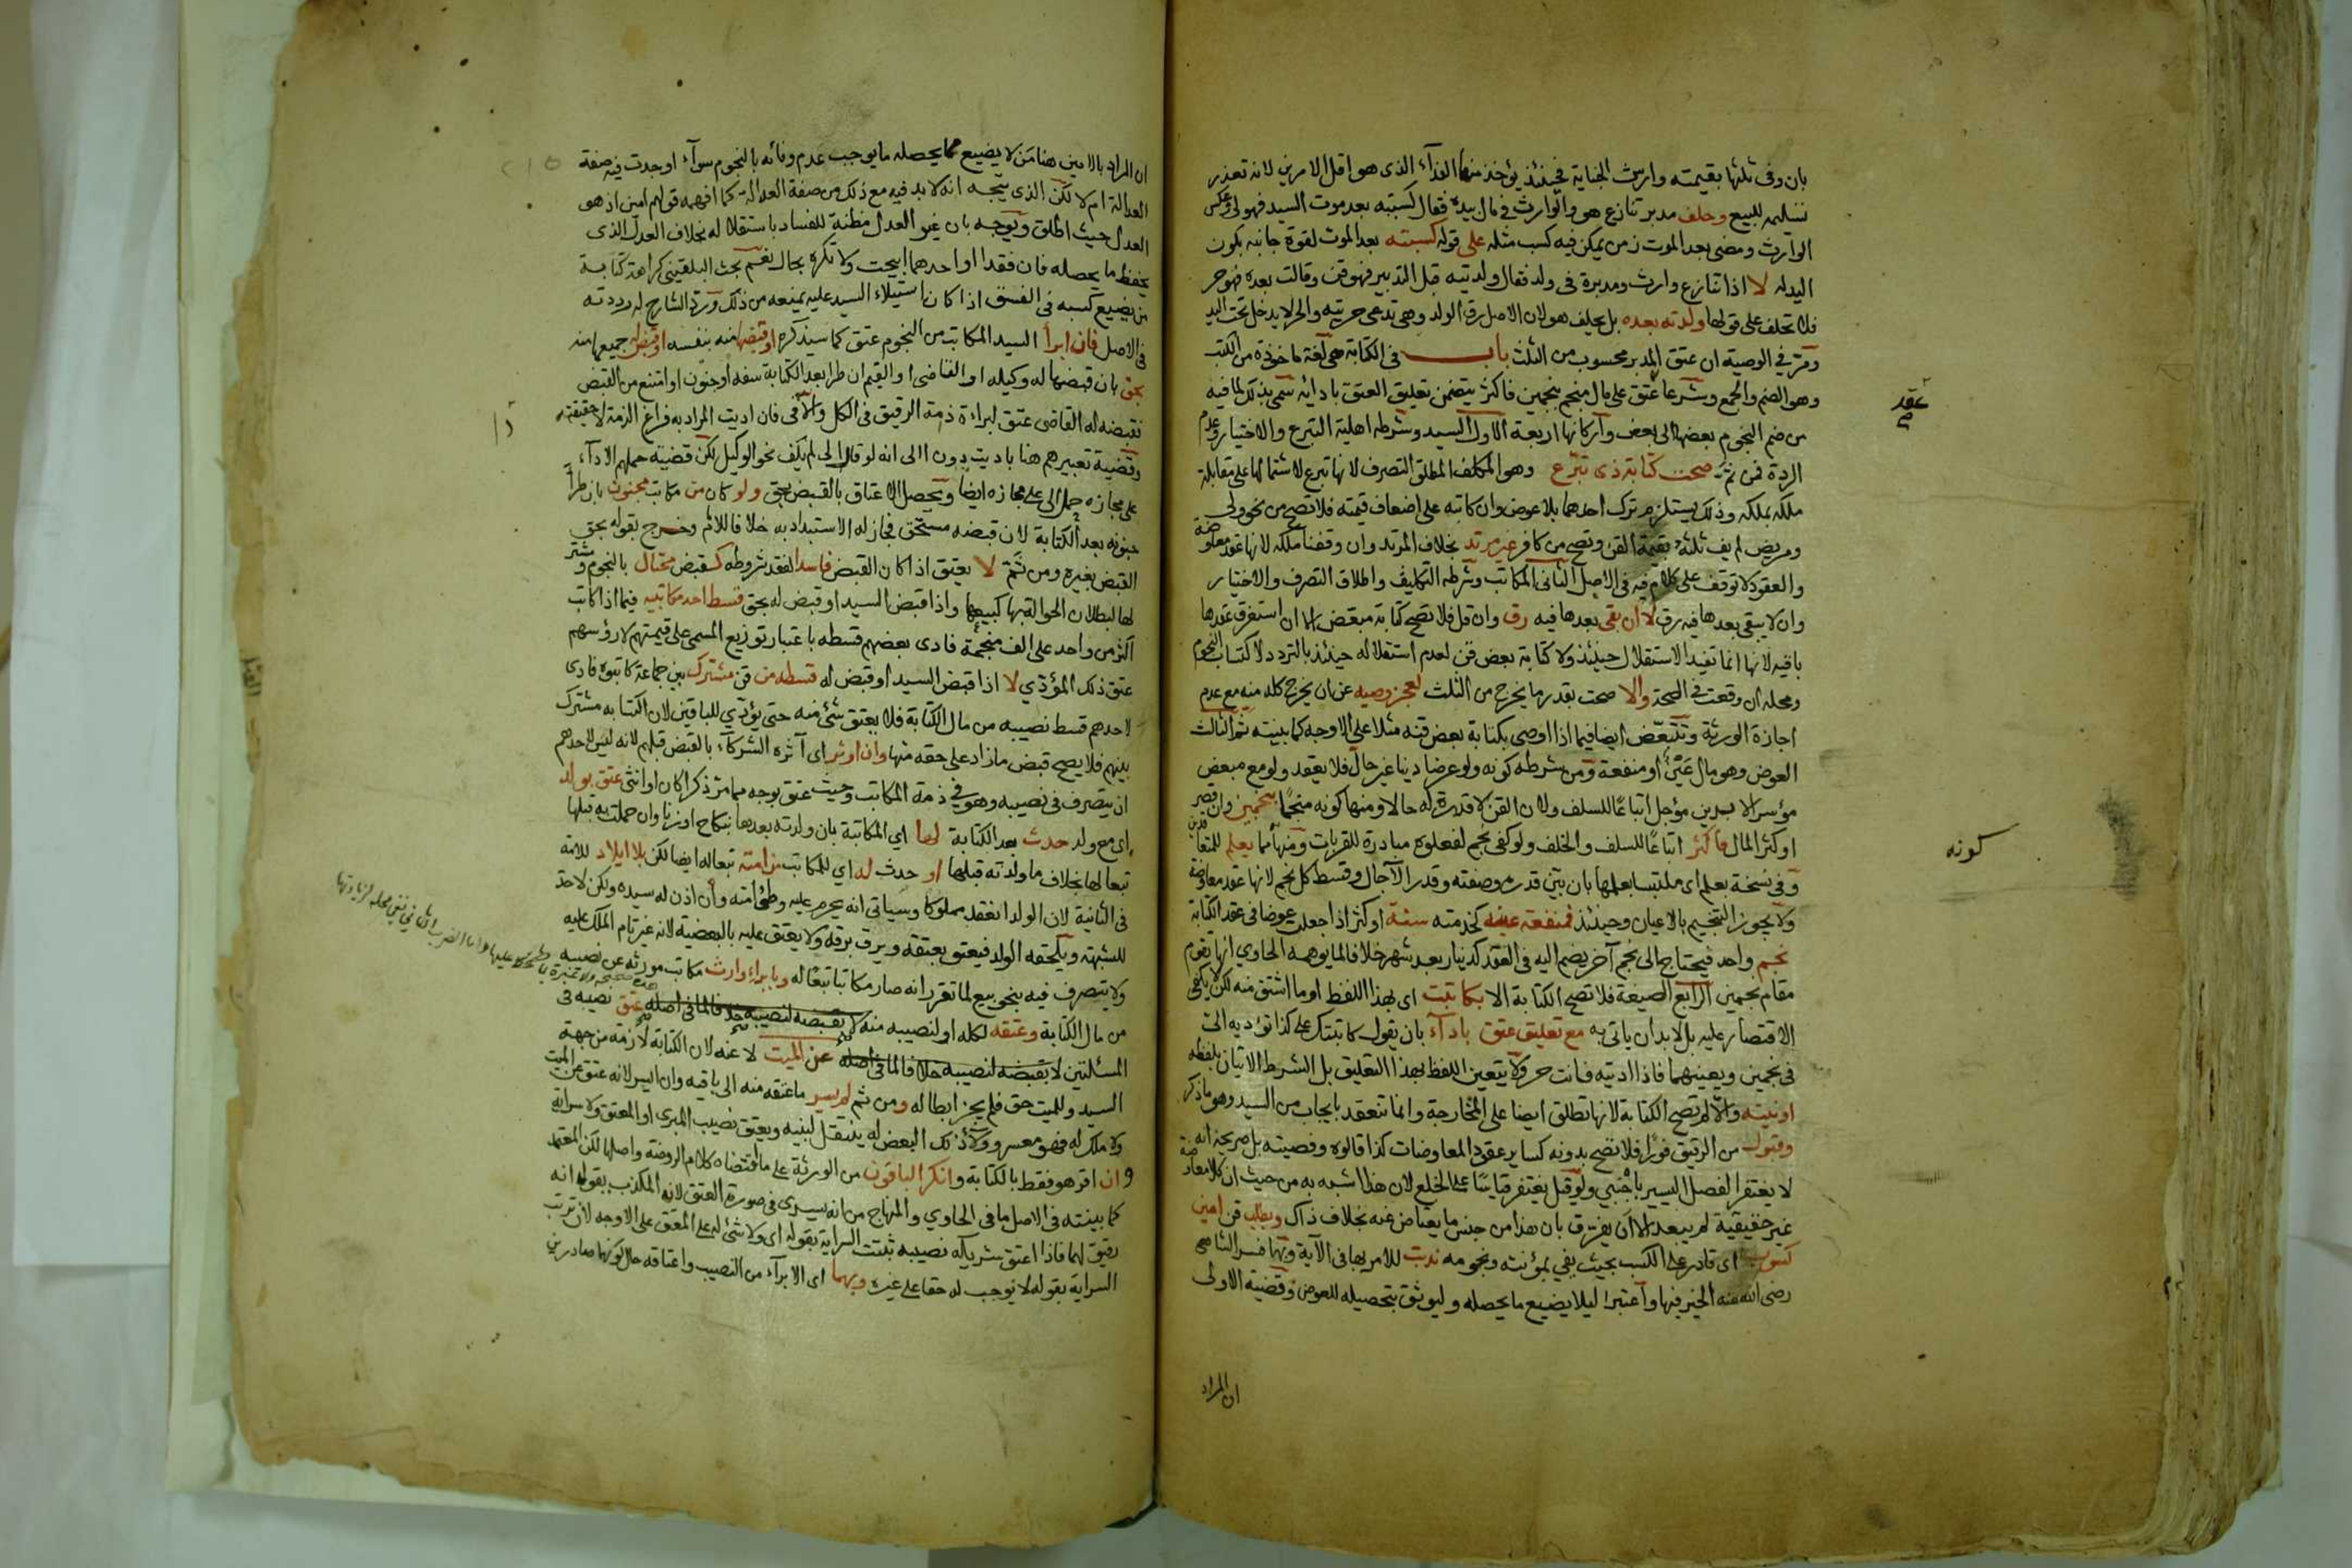 بان وفى ثلثها بقيمته وارش الجناية فحينئذ يؤخذ منها الفدآء الذى هو اقل الامرين لانه تعذر
تسليمه للبيع وحلف مدبر تنازع هو والوارث فى مال بيده فقال كسبته بعد موت السيد فهو لى وعكس
الوارث ومضى بعد الموت زمن يمكن فيه كسب مثله على قوله كسبته بعد الموت لقوة جانبه بكون
اليد له لا اذا تنازع وارث ومدبرة فى ولد فقال ولدتيه قبل التدبير فهو قن وقالت بعده فهو حر
فلا تحلف على قولها ولدته بعده بل يحلف هو لان الاصل رق الولد وهى تدعى حريته والحر لا يدخل تحت اليد
ومر فى الوصية ان عتق المدبر محسوب من الثلث باب فى الكتابة هى لغة ماخوذة من الكتب
وهو الضم والجمع وشرعا عتق على مال منجم بنجمين فاكثر يتضمن تعليق العتق بادائه سمى بذلك لما فيه
من ضم النجوم بعضها الى بعض وآركانها اربعة الاول السيد وشرطه اهلية التبرع والاختيار وعدم
الردة فمن ثم صحت كتابة ذى تبرع وهو المكلف المطلق التصرف لانها تبرع لاشتمالها على مقابلة
ملكه بملكه وذلك يستلزم ترك احدهما بلا عوض وان كاتبه على اضعاف قيمته فلا تصح من نحو ولى
ومريض لم يف ثلثه بقيمة القن وتصح من كافر غير مرتد بخلاف المرتد وان وقفنا ملكه لانها عقد معاوضة
والعقود لا توقف على كلام فيه فى الاصل الثانى المكاتب وشرطه التكليف واطلاق التصرف والاختيار
وان لا يبقى بعدها فيه رق لا ان بقى بعدها فيه رق وان قل فلا تصح كتابة مبعض الا ان استغرق عقدها
باقيه لانها انما تفيد الاستقلال حينئذ ولا كتابة بعض قن لعدم استقلاله حينئذ بالتردد لاكتساب النجوم
ومحله ان وقعت فى الصحة والا صحت بقدر ما يخرج من الثلث لعجز وصيه عن ان يخرج كله منه مع عدم
اجازة الورثة وتتبعض ايضا فيما اذا اوصى بكتابة بعض قنه مثلا على الاوجه كما بينته ثم الثالث
العوض وهو مال عين او منفعة ومن شرطه كونه ولو عرضا دينا غير حال فلا يعقد ولو مع مبعض
مؤسر الا بدين مؤجل اتباعا للسلف ولان القن لا قدرة له حالا ومنها كونه منجما بنجمين وان قصر
او كثر المال فاكثر اتباعا للسلف والخلف ولو كفى نجم لفعلوه مبادرة للقربات ومنها مما يعلم للمتعاقدين
وفى نسخة بعلم اى ملتبسا بعلمها بان يبين قدره وصفته وقدر الآجال وقسط كل نجم لانها عقد معاوضة
ولا يجوز التنجيم بالاعيان وحينئذ فمنفعة عينه كخدمته سنة او كثر اذا جعلت عوضا فى عقد الكتابة
نجم واحد فيحتاج الى نجم آخر يضم اليه فى العقد كدينار بعد شهر خلافا لما يوهمه الحاوي انها تقوم
مقام نجمين الرابع الصيغة فلا تصح الكتابة الا بكاتبت اى بهذا اللفظ او ما اشتق منه لكن لا يكفى
الاقتصار عليه بل لابد ان ياتى به مع تعليق عتق بادآء بان يقول كاتبتك على كذا تؤديه الى
فى نجمين ويعينهما فاذا اديته فانت حر ولا يتعين اللفظ بهذا التعليق بل الشرط الاتيان بلفظه
او نيته والا لم تصح الكتابة لانها تطلق ايضا على المخارجة وانما تنعقد بايجاب من السيد وهو ما ذكر
وقبول من الرقيق فورا فلا تصح بدونه كساير عقود المعاوضات كذا قالوه وقضيته بل صريحه انه
لا يغتفر الفصل اليسير باجنبي ولو قيل يغتفر قياسا على الخلع لان هذا اشبه به من حيث ان كلا معاوضة
غير حقيقية لم يبعد الا ان يفرق بان هذا من جنس ما يعتاض عنه بخلاف ذاك وبطلب قن امين
كسوب اى قادر على الكسب بحيث يفي بمؤنته ونجومه ندبت للامر بها فى الآية وبهما فسر الشافعى
رضى الله عنه الخير فيها واعتبرا ليلا يضيع ما يحصله وليوثق بتحصيله للعوض وقضية الاولى
ان المراد
عقد
صح
كونه
ان المراد بالامين هنا من لا يضيع مما يحصله ما يوجب عدم وفائه بالنجوم سوآء اوجدت فيه صفة
العدالة ام لا لكن الذى يتجه انه لابد فيه مع ذلك من صفة العدالة كما افهمه قولهم امين اذ هو
العدل حيث اطلق ويوجه بان غير العدل مظنة للفساد باستقلاله بخلاف العدل الذى
يحفظ ما يحصله فان فقدا او احدهما ابيحت ولا تكره بحال نعم بحث البلقيني كراهة كتابة
من يضيع كسبه فى الفسق اذا كان استيلاء السيد عليه يمنعه من ذلك ورد الشارح له رددته
فى الاصل فان ابرا السيد المكاتب من النجوم عتق كما سيذكره او قبضها منه بنفسه او قبض له جميعها منه
بحق بان قبضها له وكيله او القاضى او القيم ان طرا بعد الكتابة سفه او جنون او امتنع من القبض
فقبضه له القاضى عتق لبراءة ذمة الرقيق فى الكل والآفى فان اديت المراد به فراغ الذمة لا حقيقته
وقضية تعبيرهم هنا باديت دون الى انه لو قال الى لم يكف نحو الوكيل لكن قضية حملهم الادآء
على مجازه حمل الى على مجازه ايضا ويحصل الاعتاق بالقبض بحق ولو كان من مكاتب مجنون بان طرا
جنونه بعد الكتابة لان قبضه مستحق فجاز له الاستبداد به خلافا للائم وخرج بقوله بحق
القبض بغيره ومن ثم لا يعتق اذا كان القبض فاسدا لفقد شروطه كقبض محتال بالنجوم ومشتر
لها لبطلان الحوالة بها كبيعها واذا قبض السيد او قبض له بحق قسط احد مكاتبيه فيما اذا كاتب
اكثر من واحد على الف منجمة فادى بعضهم قسطه باعتبار توزيع المسمى على قيمتهم لا رؤسهم
عتق ذلك المؤدي لا اذا قبض السيد او قبض له قسطه من قن مشترك بين جماعة كاتبوه فادى
لاحدهم قسط نصيبه من مال الكتابة فلا يعتق شئ منه حتى يؤدي للباقين لان الكتابة مشترك
بينهم فلا يصح قبض ما زاد على حقه منها وان اوثر اى آثره الشركآء بالقبض قبلهم لانه ليس لاحدهم
ان يتصرف فى نصيبه وهو فى ذمة المكاتب وحيث عتق بوجه مما مر ذكرا كان او انثى عتق بولد
اى مع ولد حدث بعد الكتابة لها اي المكاتبة بان ولدته بعدها بنكاح او زنا وان حملت به قبلها
تبعا لها بخلاف ما ولدته قبلها او حدث له اي للمكاتب من امته تبعا له ايضا لكن بلا ايلاد للامة
فى الثانية لان الولد انعقد مملوكا وسياتى انه يحرم عليه وطئ امته وان اذن له سيده ولكن لا حد
للشبهة ويلحقه الولد فيعتق بعتقه ويرق برقه ولا يعتق عليه بالبعضية لانه غير تام الملك عليه
ولا يتصرف فيه بنحو بيع لما تقرر انه صار مكاتبا تبعا له وبابراء وارث مكاتب مورثه عن نصيبه
من مال الكتابة وعتقه لكله او لنصيبه منه لا بقبضه لنصيبه خلافا لما فى اصله عتق نصيبه فى
المسئلتين لا بقبضه لنصيبه خلافا لما فى اصله عن الميت لا عنه لان الكتابة لازمة من جهة
السيد وللميت حق فلم يجز ابطاله ومن ثم لم يسر ما عتقه منه الى باقيه وان ايسر لانه عتق عن الميت
ولا ملك له فهو معسر وولآء ذلك البعض له ينتقل لبنيه ويعتق نصيب المبرى او المعتق ولا سراية
وان اقر هو فقط بالكتابة وانكر الباقون من الورثة على ما اقتضاه كلام الروضة واصلها لكن المعتمد
كما بينته فى الاصل ما فى الحاوي والمنهاج من انه يسرى فى صورة العتق لانه المكذب بقوله انه
رقيق لهما فاذا اعتق شريكه نصيبه ثبتت السراية بقوله اى ولا شئ له على المعتق على الاوجه لان ترتب
السراية بقوله لا يوجب له حقا على غيره وبهما اى الابرآء من النصيب واعتاقه حال كونهما صادرين